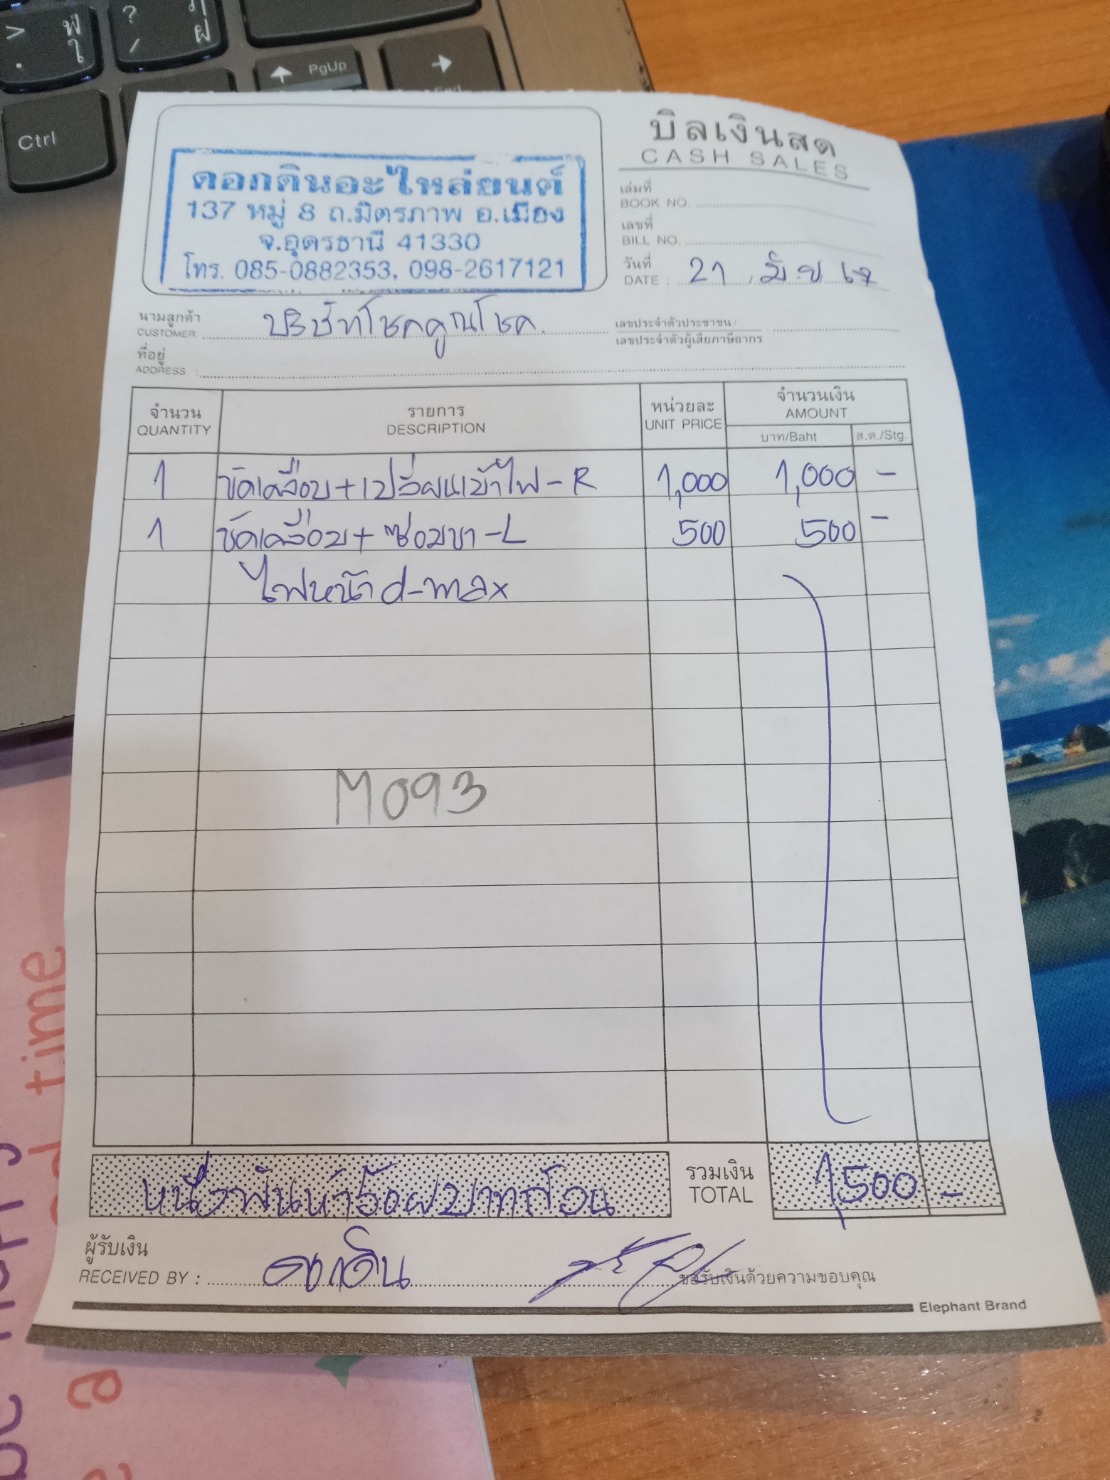 > ฟ . ใ
? ฦ / ฝ
Ctrl
PgUp
บิลเงินสด
CASH SALES
ดอกดินอะไหล่ยนต์
137 หมู่ 8 ถ.มิตรภาพ อ.เมือง
จ.อุดรธานี 41330
โทร. 085-0882353, 098-2617121
เล่มที่
BOOK NO.
เลขที่
BILL NO.
วันที่
DATE : 21
นามลูกค้า
CUSTOMER: บริษัทโชคคูณโชค.
เลขประจำตัวประชาชน/
เลขประจำตัวผู้เสียภาษีอากร
ที่อยู่
ADDRESS :
จำนวน รายการ หน่วยละ จำนวนเงิน
QUANTITY DESCRIPTION UNIT PRICE AMOUNT
บาท/Baht ส.ต./Stg.
1 ขัดเคลือบ+เปลี่ยนเบ้าไฟ-R 1,000 1,000 -
1 ขัดเคลือบ+ซ่อมขา-L 500 500 -
ไฟหน้า d-max
M093
หนึ่งพันห้าร้อยบาทถ้วน รวมเงิน TOTAL 1,500 -
ผู้รับเงิน
RECEIVED BY : ดอกดิน ขอรับเงินด้วยความขอบคุณ
Elephant Brand
time
a
be